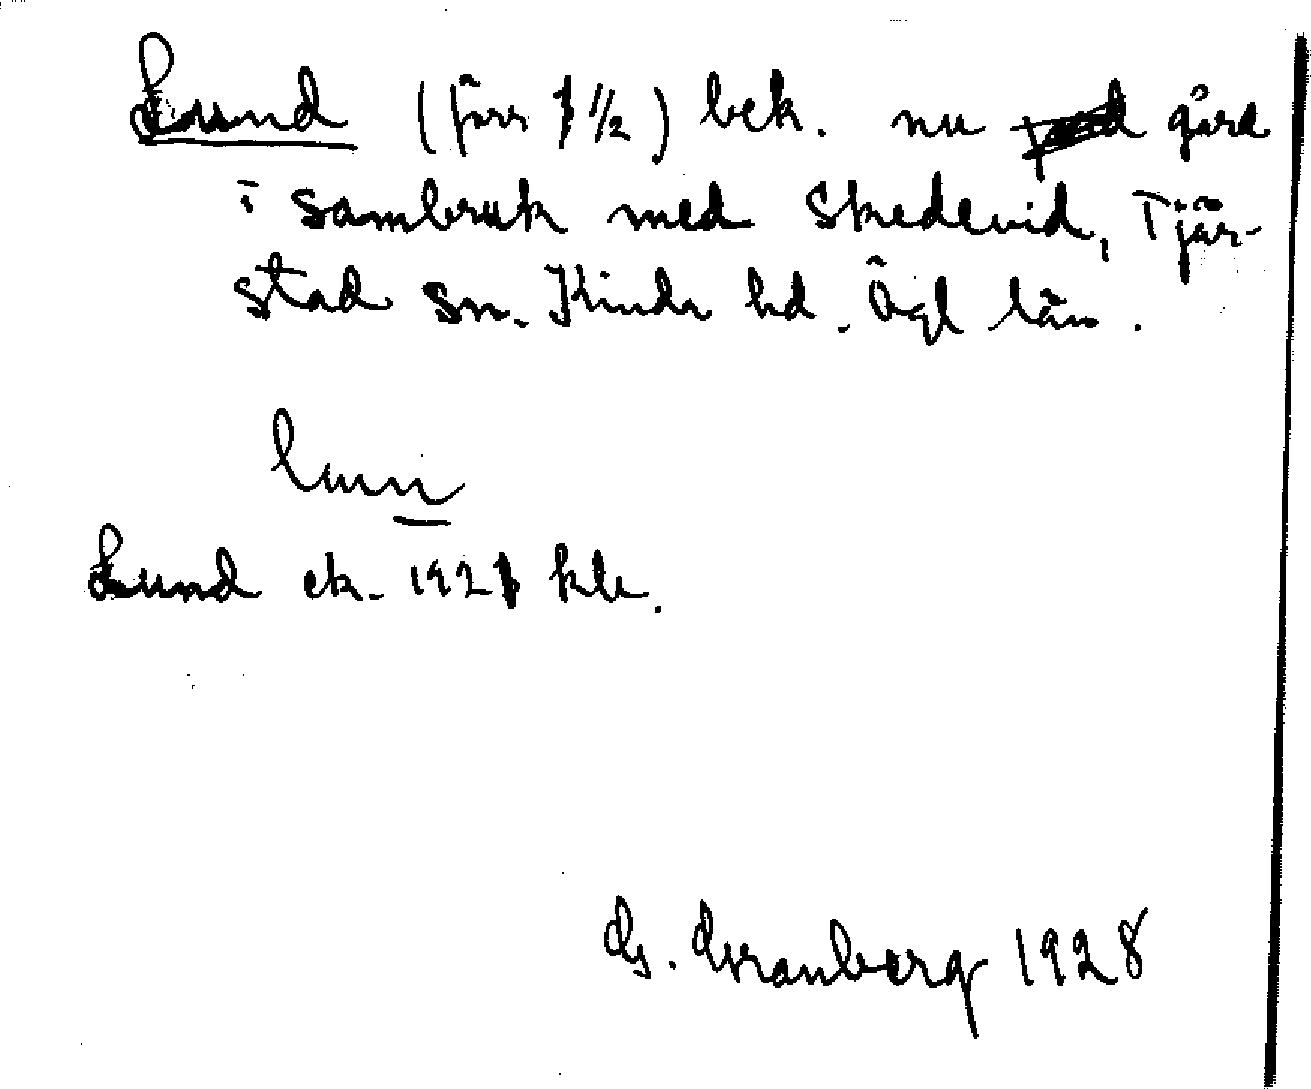 Lund (förr 1 1/2) bek. nu gård
i sambruk med Skedevid, Tjär-
stad sn. Kinda hd. Ögl län.
lunn
Lund ek. 1921 kll.
G. Granberg 1928